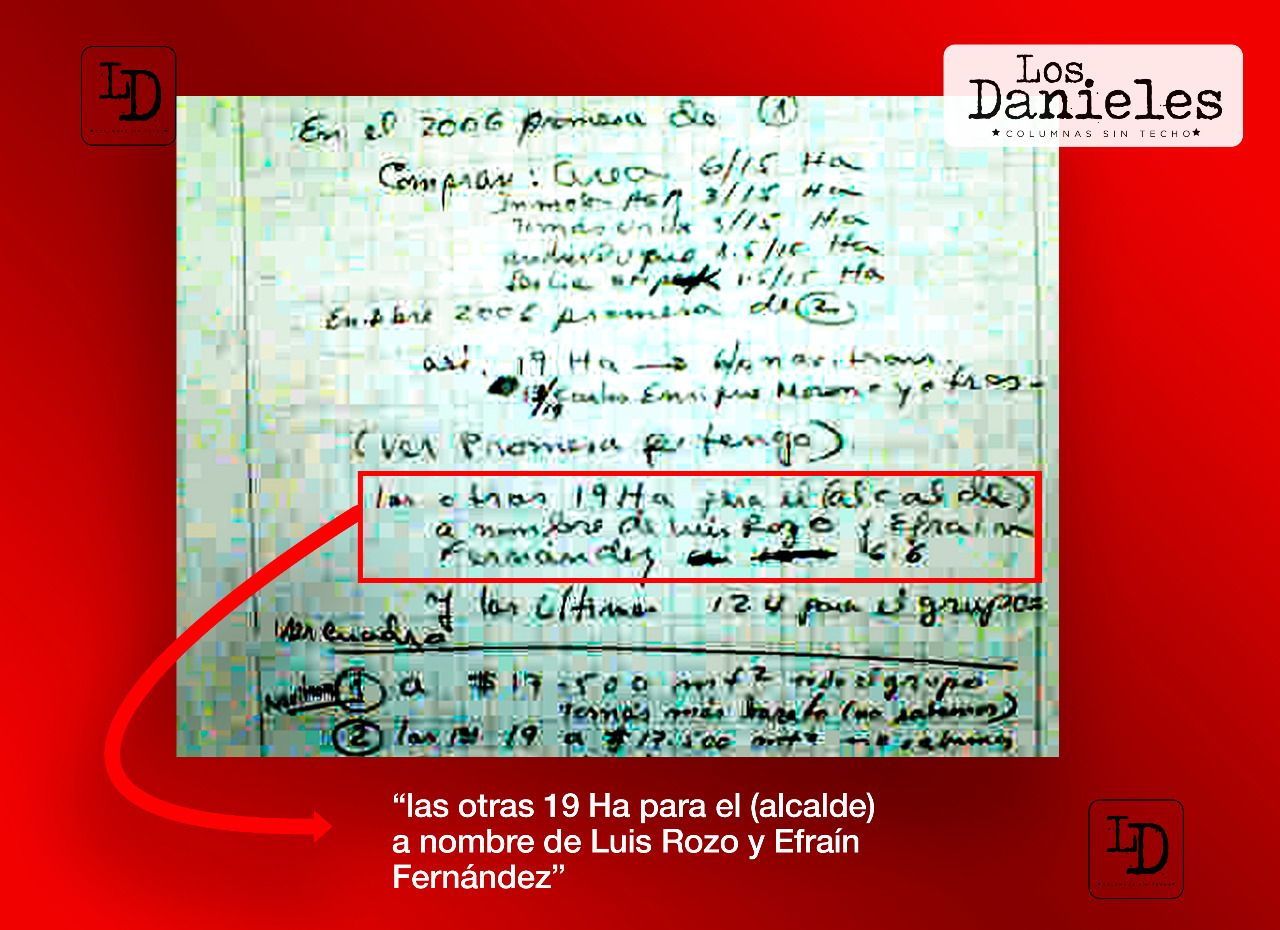 LD
Los
Danieles
COLUMNAS SIN TECHO
En el 2006 promesa de ①
Compran: Area 6/15 Ha
3/15 Ha
Tomás Uribe 3/15 Ha
1.5/15 Ha
1.5/15 Ha
2006 promesa de ②
así. 19 Ha →
Carlos Enrique Moreno y otros
(ver Promesa q tengo)
las otras 19 Ha para el (alcalde)
a nombre de Luis Rozo y Efraín
Fernández 6.6
y las últimas 12.4 para el grupo
ver cuadro
① a $17.500 mt² todo el grupo
Tomás más barato (no sabemos)
② las 19 a $17.500
“las otras 19 Ha para el (alcalde)
a nombre de Luis Rozo y Efraín
Fernández”
LD